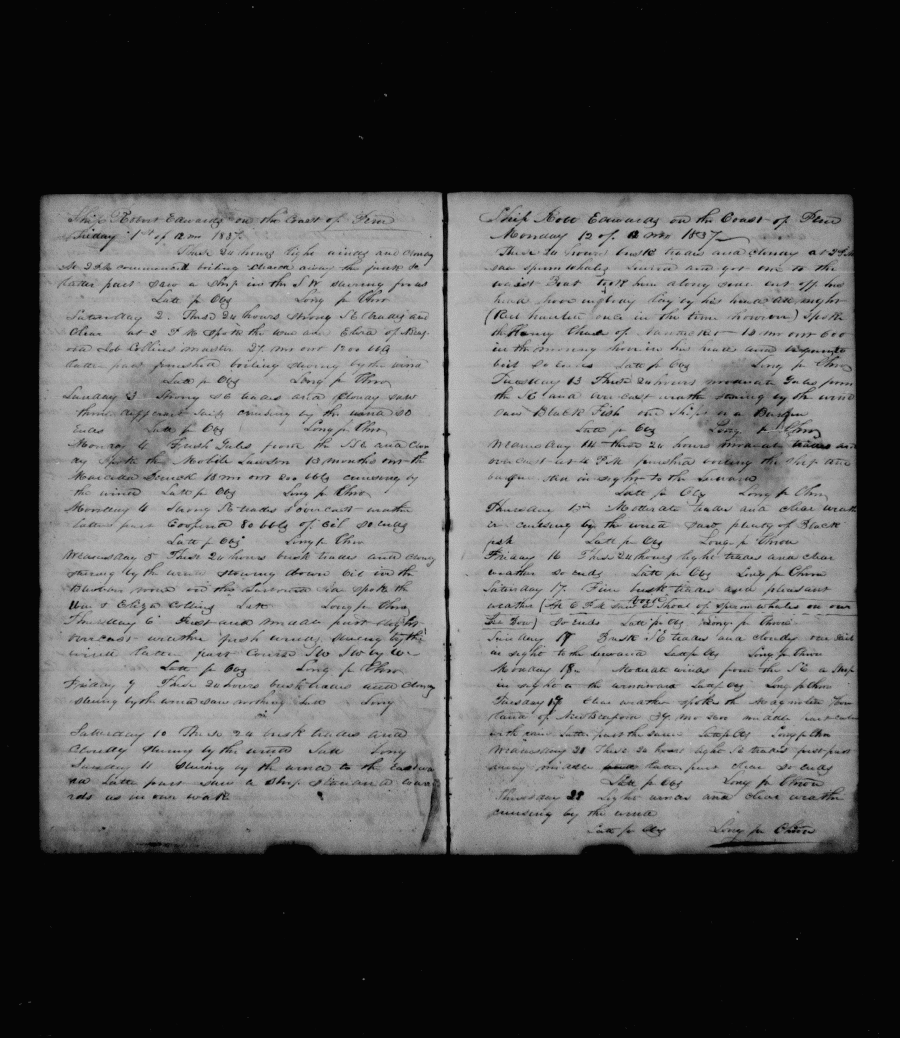 Ship Robert Edwards on the Coast of Peru
Friday 1st of 12 mo 1837
These 24 hours light winds and cloudy
At 2 PM commenced boiling cleared away the junk so
latter part saw a ship in the S W steering for us
Latt p Obs Long p Chro
Saturday 2. These 24 hours strong SE trades and
clear at 2 P M spoke the
Job Collins master 27 mo out 1200 bbls
latter part finished boiling steering by the wind
Latt p Obs Long p Chro
Sunday 3 Strong SE trades and cloudy saw
three different ships cruising by the wind so
ends Latt p Obs Long p Chro
Monday 4 Fresh Gales from the SE and clou
dy spoke the Mobile Lawson 13 months out the
18 mo out 200 bbls cruising by
the wind Latt p Obs Long p Chro
Monday 4 Strong SE trades & overcast weather
latter part Coopered 80 bbls of Oil so ends
Latt p Obs Long p Chro
Wednesday 5 These 24 hours busk trades and cloudy
steering by the wind stowing down Oil in the
spoke the
Wm & Eliza Collins Latt Long p Chro
Thursday 6 First and middle part light
overcast weather fresh winds steering by the
wind latter part Course SW SW by W
Latt p Obs Long p Chro
Friday 9 These 24 hours busk trades and cloudy
steering by the wind saw nothing Latt Long
Saturday 10 These 24 busk trades and
Cloudly steering by the wind Latt Long
Sunday 11 steering by the wind to the Eastwa
rd Latter part saw a Ship standing towa
rds us in our wake
Ship Robt Edwards on the Coast of Peru
Monday 12 of 12 mo 1837
These 24 hours busk trades and cloudy at 2 PM
saw sperm whales lowered and got one to the
waist Boat took him along side cut off his
head hove lay by his head all night
(Red hunter once in the time however) Spoke
the Henry Chase of Nantucket 13 mo out 600
in the morning hove in his head and
bit so ends Latt p Obs Long p Chro
Tuesday 13 These 24 hours moderate Gales from
the SE and overcast weather steering by the wind
saw Black Fish one Ship & a Barque
Latt p Obs Long p Chro
Wednesday 14 these 24 hours moderate trades and
overcast at 4 P M finished boiling the Ship and
barque still in sight to the Leeward
Latt p Obs Long p Chro
Thursday 15 Moderate trades and clear weath
er cruising by the wind saw plenty of Black
fish Latt p Obs Long p Chron
Friday 16 These 24 hours light trades and clear
weather so ends Latt p Obs Long p Chron
Saturday 17 Fine busk trades and pleasant
weather (At 6 P M saw a Shoal of sperm whales on our
Lee Bow) so ends Latt p Obs Long p Chron
Sunday 17 Busk SE trades and cloudy one sail
in sight to the leeward Latt p Obs Long p Chron
Monday 18 Moderate winds from the SE a Ship
in sight to the windward Latt p Obs Long p Chro
Tuesday 19 Clear weather spoke the
of New Bedford 27 mo 2200 middle part cloudy
with rain Latter part the same Latt p Obs Long p Chro
Wednesday 20 These 24 hours light SE trades first part
rainy middle and latter part clear so ends
Latt p Obs Long p Chron
Thursday 22 Light winds and clear weather
cruising by the wind
Latt p Obs Long p Chron